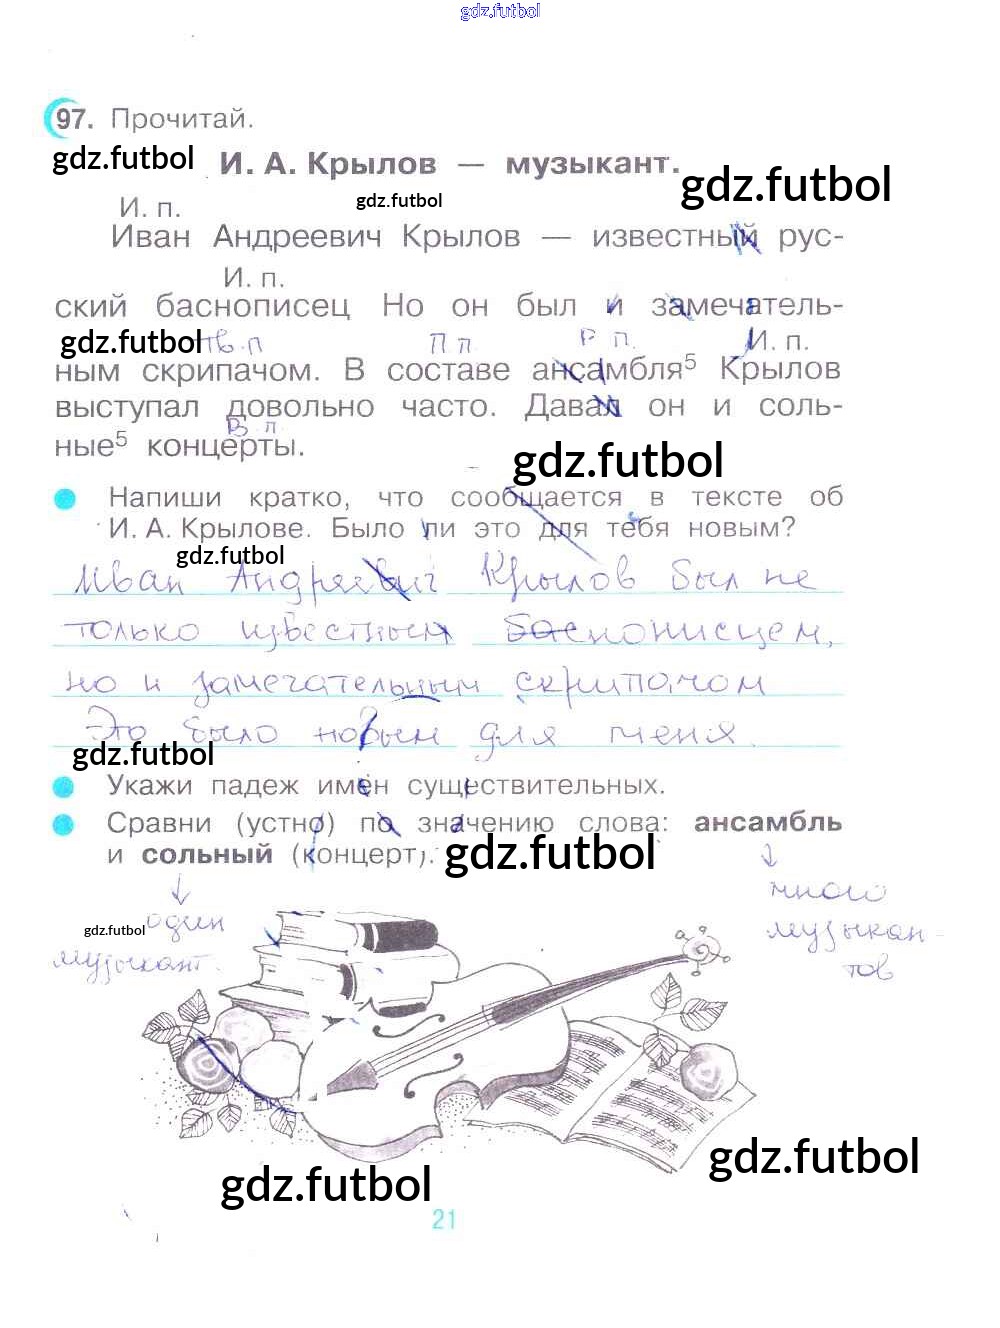 gdz.futbol
97. Прочитай.
gdz.futbol
И. А. Крылов — музыкант.
gdz.futbol
И. п.
gdz.futbol
Иван Андреевич Крылов — известный рус-
И. п.
ский баснописец Но он был и замечатель-
gdz.futbol
Тв. п П п. Р п. И. п.
ным скрипачом. В составе ансамбля⁵ Крылов
выступал довольно часто. Давал он и соль-
В. п.
ные⁵ концерты.
gdz.futbol
Напиши кратко, что сообщается в тексте об
И. А. Крылове. Было ли это для тебя новым?
gdz.futbol
Иван Андреевич Крылов был не
только известным баснописцем,
но и замечательным скрипачом
Это было новым для меня.
gdz.futbol
Укажи падеж имён существительных.
Сравни (устно) по значению слова: ансамбль
и сольный (концерт).
gdz.futbol
много
музыкан-
тов
gdz.futbol
один
музыкант.
gdz.futbol
gdz.futbol
21